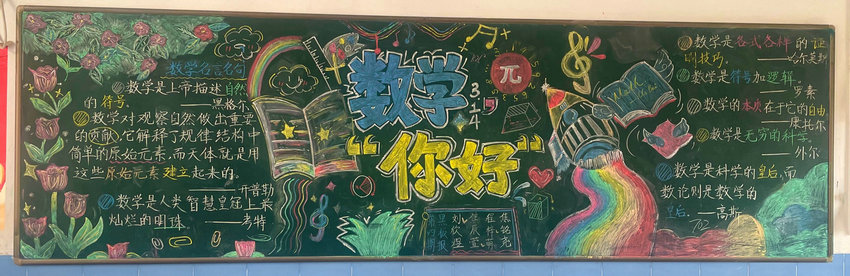 数学名言名句
数学是上帝描述自然
的符号。——黑格尔
数学对观察自然做出重要
的贡献,它解释了规律结构中
简单的原始元素,而天体就是用
这些原始元素建立起来的。
——开普勒
数学是人类智慧皇冠上最
灿烂的明珠。——考特
数学
“你好”
π
3.14
Math
数学是各式各样的证
明技巧。
数学是符号加逻辑。
——罗素
数学的本质在于它的自由
——康托尔
数学是无穷的科学。
——外尔
数学是科学的皇后,而
数论则是数学的
皇后。——高斯
702